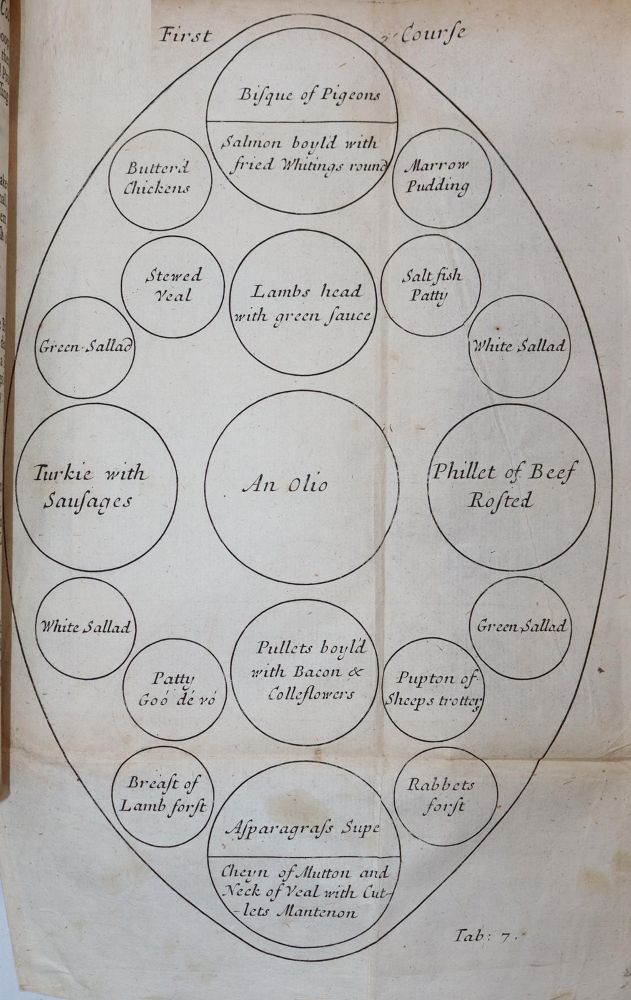 First Courſe
Biſque of Pigeons
Salmon boyld with
fried Whitings round
Butterd
Chickens
Marrow
Pudding
Stewed
Veal
Lambs head
with green ſauce
Salt fiſh
Patty
Green Sallad
White Sallad
Turkie with
Sauſages
An Olio
Phillet of Beef
Roſted
White Sallad
Green Sallad
Patty
Goó dé vó
Pullets boyl'd
with Bacon &
Colleflowers
Pupton of
Sheeps trotters
Breaſt of
Lamb forſt
Rabbets
forſt
Aſparagraſs Supe
Cheyn of Mutton and
Neck of Veal with Cut-
-lets Mantenon
Tab: 7.